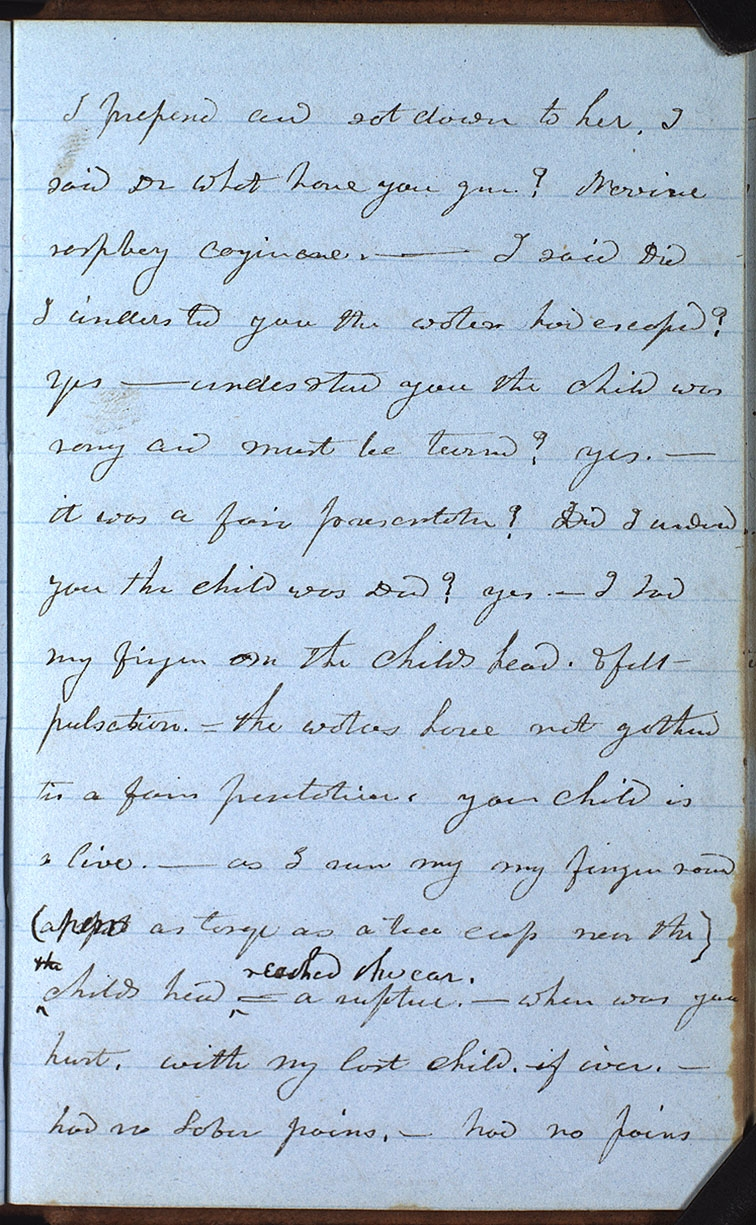 I prepend and sot down to her, I
said Dr what have you giv.? Nervine
raspbery cayinane. — I said Did
I understd you the woters had escapd?
Yes — understud you the child was
rong and must be turnd? yes. —
it was a fair presentatn? Did I underd.
you the child was Ded? yes. — I had
my finger on the childs head. & felt
pulsation. — the woters have not gathed
tis a fair pentation. your child is
alive. — as I run my my finger round
( as large as a tea cup near the)
the
childs head reached the ear. = a rupture. — when was you
hurt. with my last child. if iver. —
had no Lober pains. — had no pains